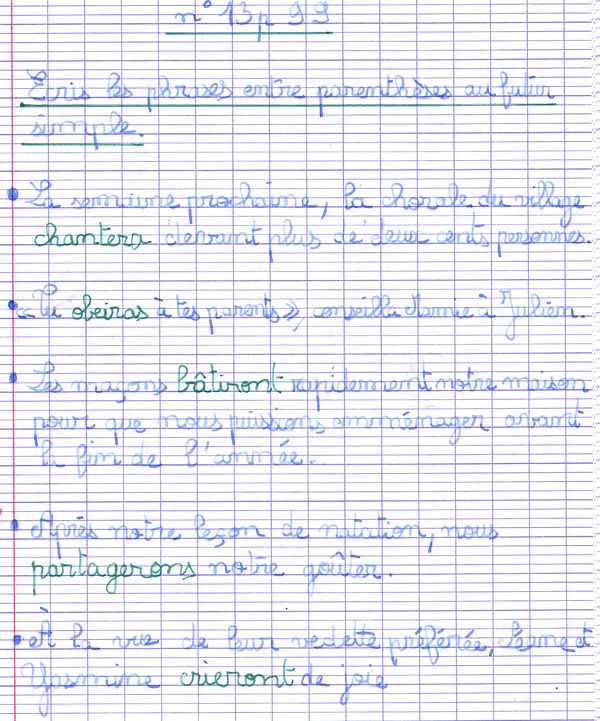 n° 13 p 99
Écris les phrases entre parenthèses au futur
simple.
La semaine prochaine, la chorale du village
chantera devant plus de deux cents personnes.
« Tu obeiras à tes parents », conseilla Mamie à Julien.
Les maçons bâtiront rapidement notre maison
pour que nous puissions emménager avant
la fin de l'année.
Après notre leçon de natation, nous
partagerons notre goûter.
À la vue de leur vedette préférée, et
Yasmine crieront de joie